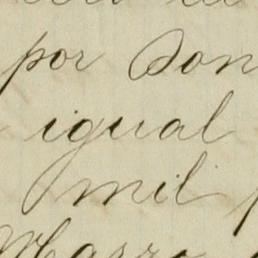 por Don
igual
mil
Marzo